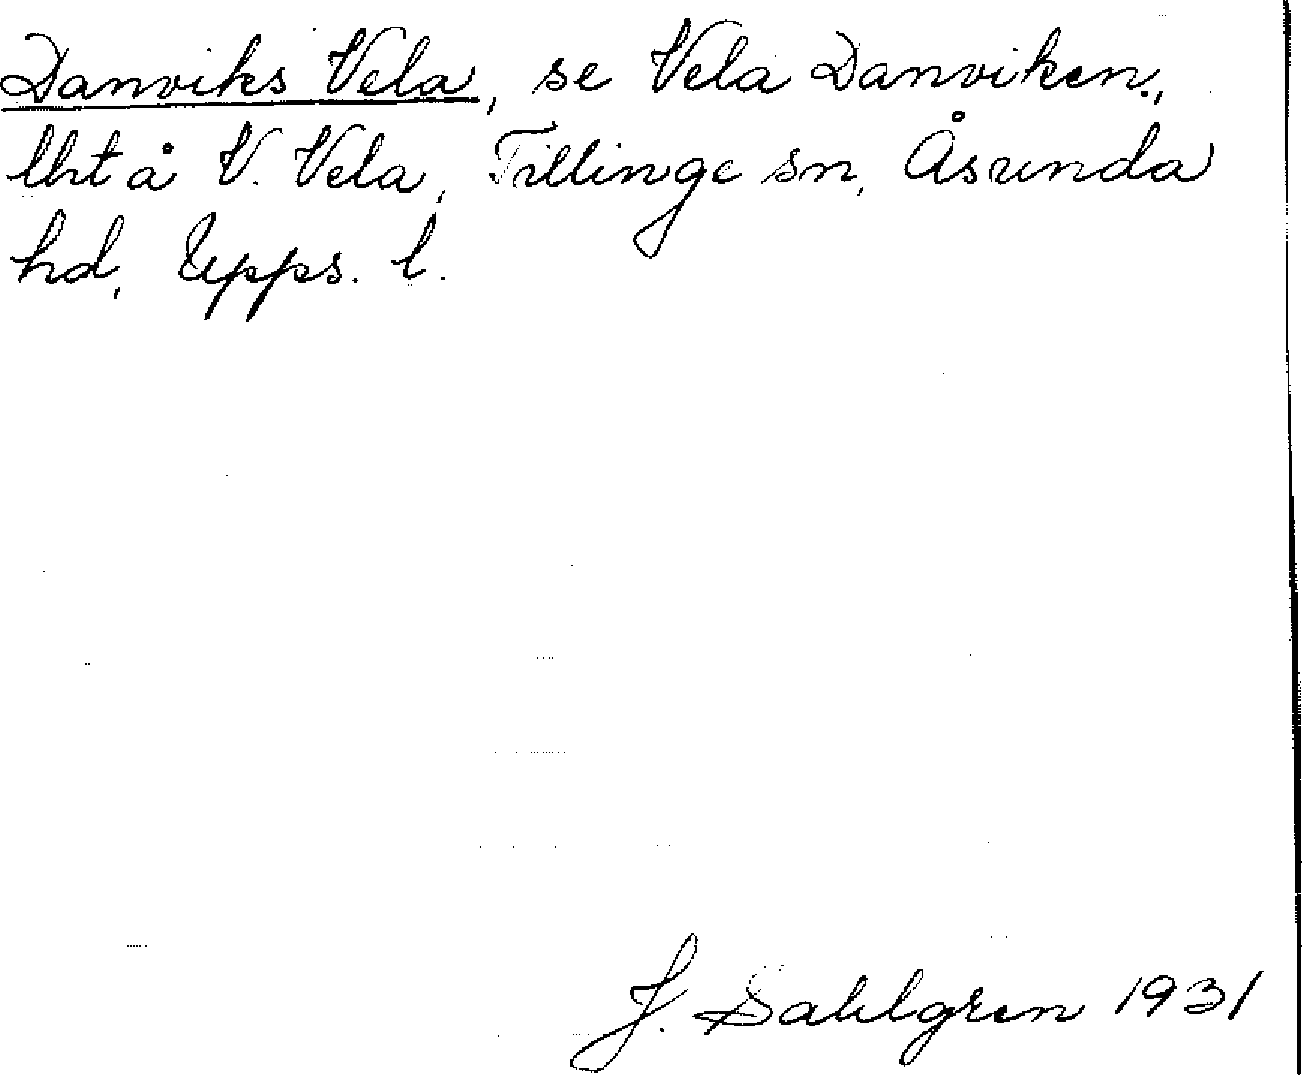 Danviks Vela, se Vela Danviken,
lht å V. Vela, Tillinge sn, Åsunda
hd, Upps. l.
J. Sahlgren 1931